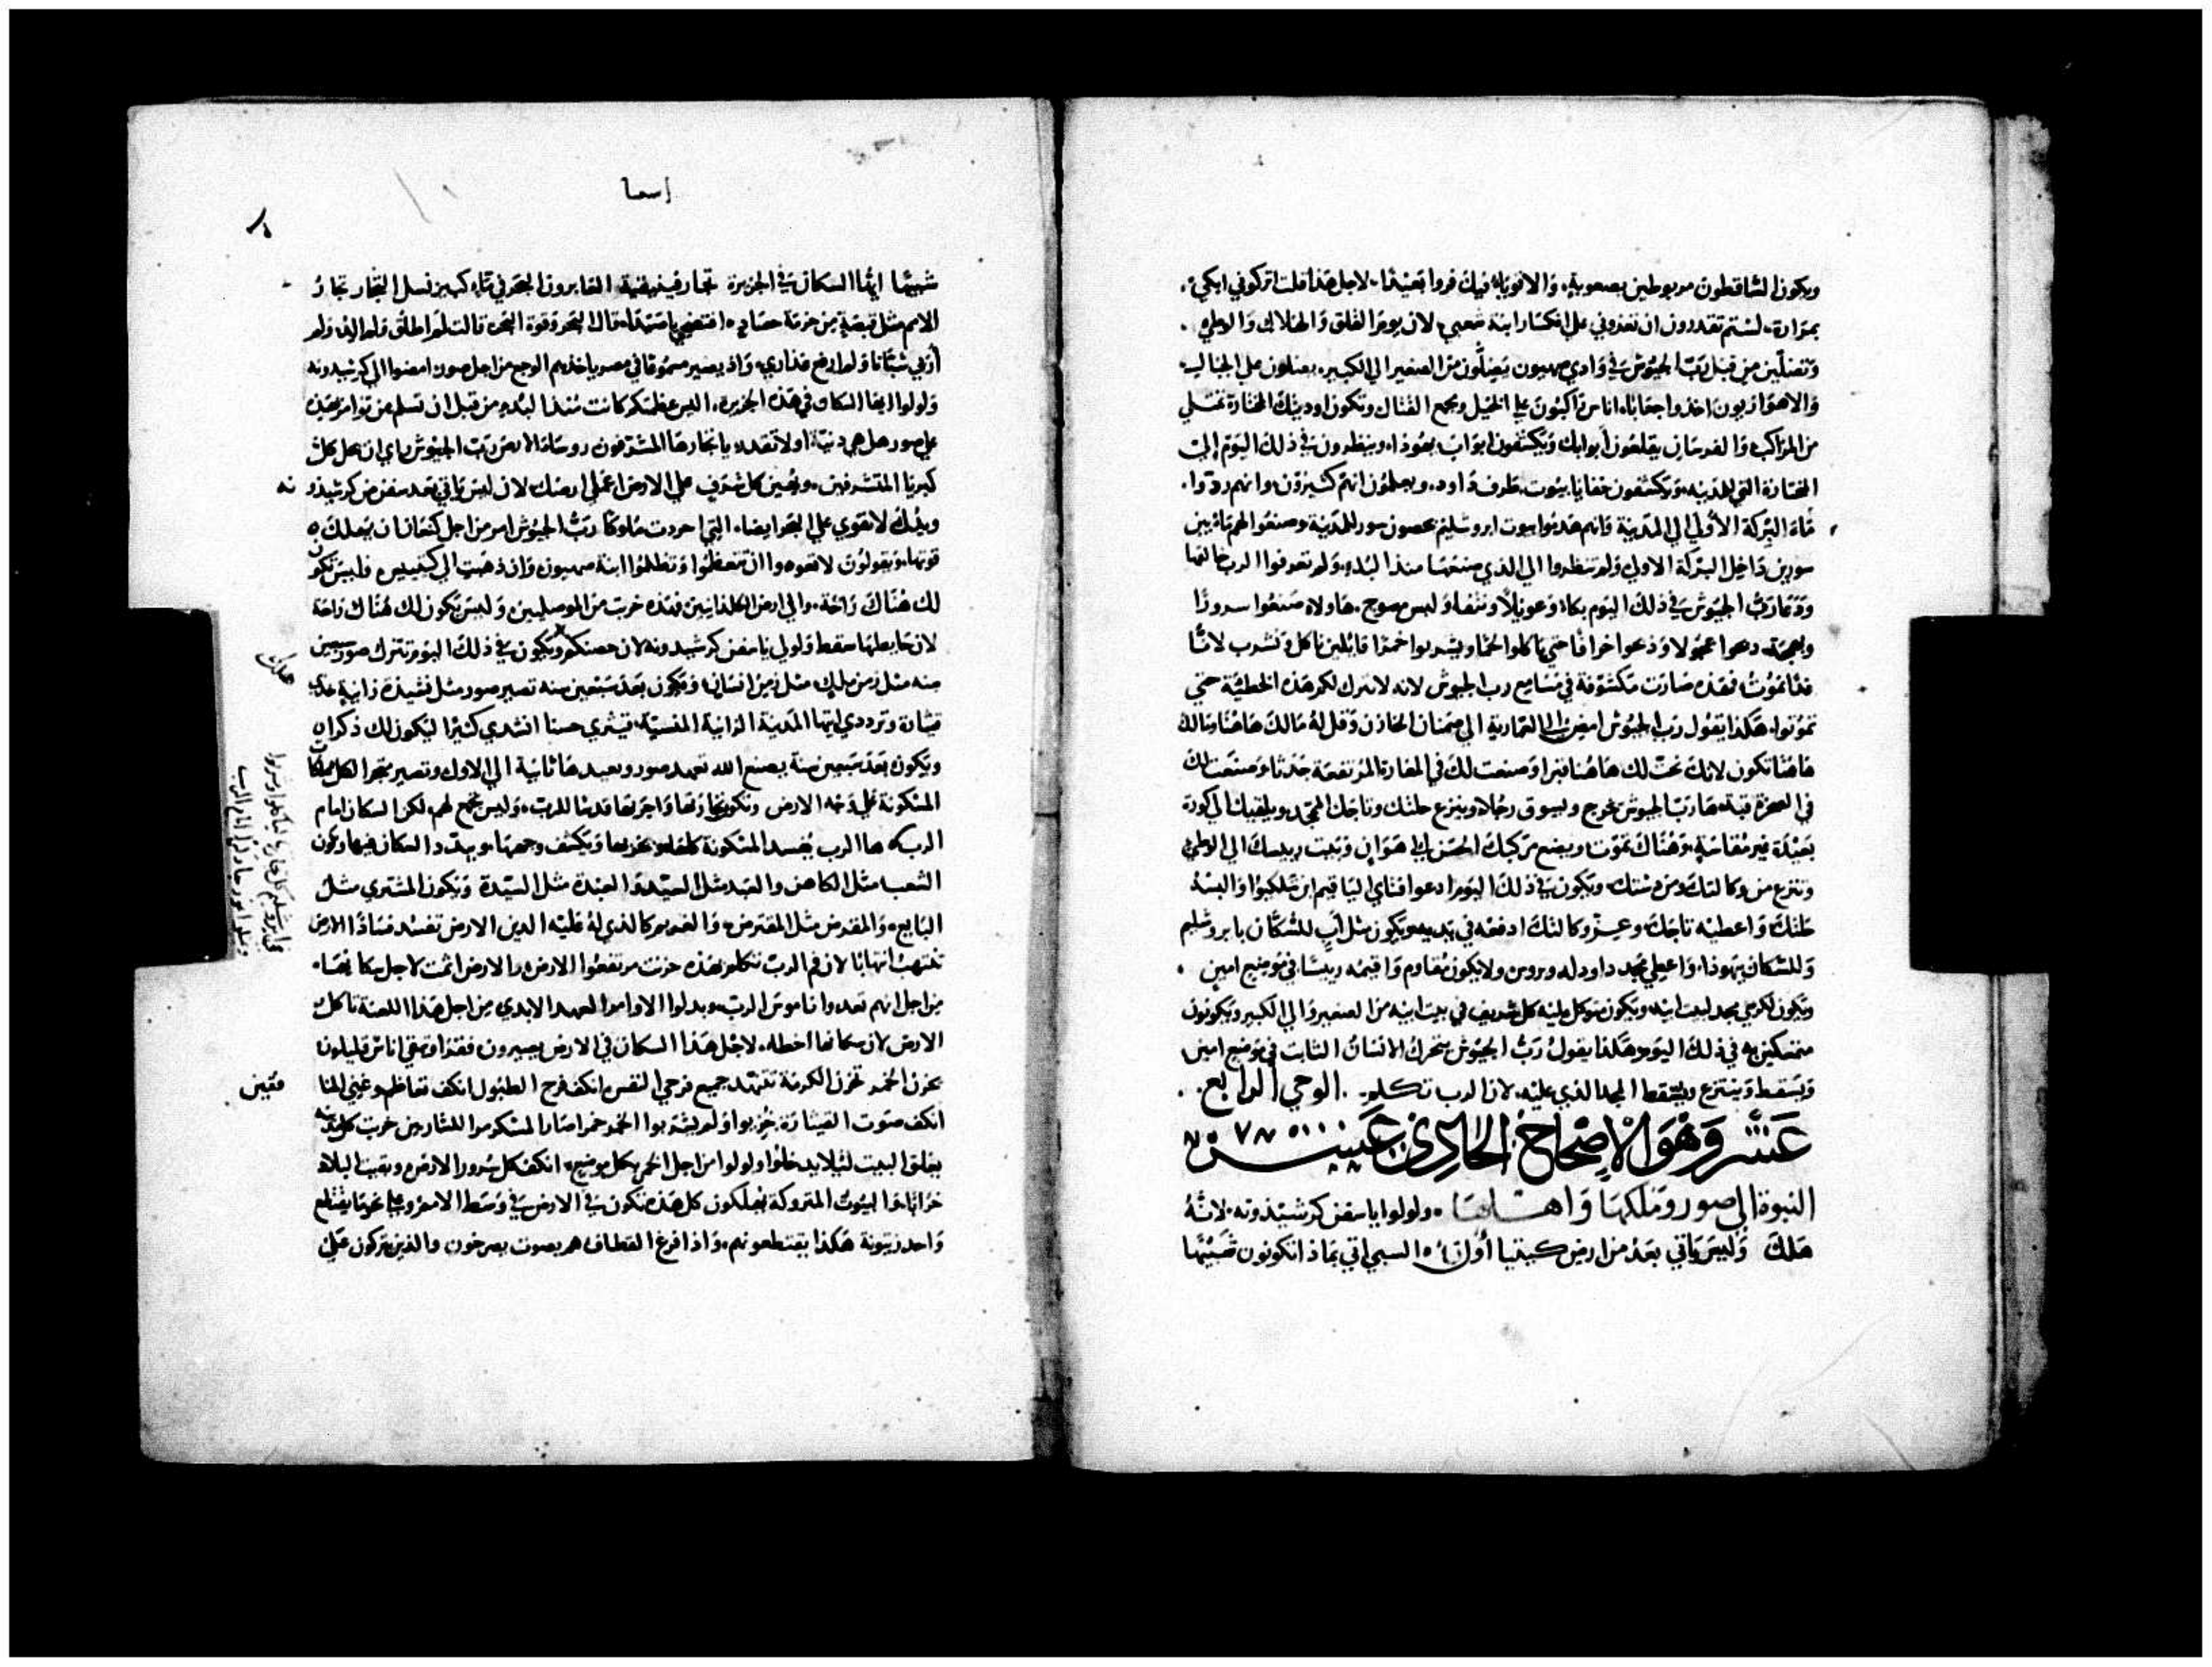 ويكون الساقطون مربوطين بصعوبة، والاقوياء فيك فروا بعيدًا، لاجل هذا قلت اتركوني ابكي
بمرارة، لستم تقدرون ان تعزوني علي انكسار ابنة شعبي، لان يوم القلق والهلاك والاوطي
وتضلّين من قبل ربّ الجيوش في وادي صهيون يضلّون من الصغير الي الكبير، يضلون علي الجبال
والاهوازيون اخذوا جعابًا، اناس راكبون علي الخيل وجمع القتال وتكون اوديتك المختارة تمتلي
من المراكب والفرسان يقلعون أبوابك ويكشفون ابواب يهوذا، وينظرون في ذلك اليوم إلي
المختارة التي للمدينه، ويكشفون خفايا بيوت طرف داود، ويعلمون انهم كثيرون وانهم ردّوا
ماء البركة الأولي الي المدينة وانهم هدموا بيوت ابروشليم بحصون سور للمدينة وصنعوا لهم ماء بين
سورين داخل البركة الاولي ولم تنظروا الي الذي صنعها منذ البدء، ولم تعرفوا الرب خالقها
ودعا ربّ الجيوش في ذلك اليوم بكاء وعويلًا ونتفا ولبس مسوح، هاولاء صنعوا سرورًا
وبهجة، دعوا عجولا وذبحوا خرافًا حتي ياكلوا لحمًا ويشربوا خمرًا قايلين ناكل ونشرب لاننا
غدًا نموت، فهذه صارت مكشوفة في مسامع رب الجيوش لانه لا تترك لكم هذه الخطيّة حتي
تموتوا، هكذا يقول رب الجيوش امض الي التمارية الي صمنان الخازن وقل له مالك هاهنا ومالك
هاهنا تكون لانك نحتّ لك هاهنا قبرا وصنعت لك في المغارة المرتفعة جدثا، وصنعت لك
في الصخرة قبة، ها ربّ الجيوش يخرج ويسوق رجُلا، وينزع حلتك وتاجك المجّد، ويلقيك الي كورة
بعيدة غير مقاسة، وهناك تموت ويضع مركبك الحسن الي هوان وبيت رييسك الي الاوطي
وتنزع من وكالتك ومن رتبتك ويكون في ذلك اليوم ادعوا فتاي اليا قيم ابن خلكيوا والبسه
حلتك واعطيه تاجك، وعزّ وكالتك ادفعه في يديه، ويكون مثل أب للسكان بابروشليم
وللسكان يهوذا، واعطي مجد داود له ويروس ولا يكون مقاوم واقيمه رييسًا في موضع امين
ويكون لكرسي مجد لبيت ابيه ويكون متوكل عليه كل شريف في بيت ابيه من الصغير والي الكبير ويكونون
متمسكين به في ذلك اليوم، هكذا يقول ربّ الجيوش يتحرك الانسان الثابت في موضع امين
ويسقط وينتزع ويسقط المجد الذي عليه، لان الرب تكلم. الوحي الرابع
عشر وهو الاصحاح الحادي عشر
النبوة الي صور وملكها واهلها، ولولوا يا سفن كرشيذونه، لانّهُ
هلك وليس ياتي بعد من ارض كيتيا أول السبي اتي بماذا تكونون شبيهًا
اسعيا
شبيهًا ايها السكان في الجزيرة تجار فينيقية العابرون البحر في ماء كثير نسل التجار تجار
الامم مثل قبضةٍ من حزمة حصاد، افتضحي يا صيدا، قال البحر وقوة البحر قالت لم اطلق ولم الد ولم
أربي شبّانا ولم ارفع عذاري، واذ يصير مسموعًا في مصر ياخذهم الوجع من اجل صور، امضوا الي كرشيدونه
ولولوا ايها السكان في هذه الجزيره، اليس عظمتكم كانت منذ البدء من قبل ان تسلم من توامر هذه
علي صور هل هي دنيّة او لا تقدر، يا تجارها المشرّفون روسا الارض ربّ الجيوش راي ان يحل كلّ
كبريا المتشرفين، ويهين كل شرف علي الارض، اعملي ارضك لان ليس ياتي بعد سفن من كرشيذو
نه
ويدك لا تقوي علي البحر ايضا، التي احردت ملوكًا ربّ الجيوش امر من اجل كنعان ان يهلك
قوتها، ويقولون لا تعودوا ان تتعظموا وتظلموا ابنة صهيون وان ذهبت الي كيتييس فليس تكون
لك هناك راحة، والي ارض الكلدانيين فهذه خربت من الموصليين، وليس يكون لك هناك راحة
لان حايطها سقط ولولي يا سفن كرشيدونه لان حصنكم هلك ويكون في ذلك اليوم تترك صور سبعين
سنه مثل زمن ملك، مثل زمن انسان، ويكون بعد سبعين سنه تصير صور مثل نشيدة زانية خذي
قيثارة وترددي ايتها المدينة الزانية المنسيّة، قيثري حسنا انشدي كثيرًا ليكون لك ذكرا
ويكون بعد سبعين سنة يصنع الله تعهد صور ويعيدها ثانية الي الاول وتصير متجرا لكل ممالك
المسكونة علي وجه الارض وتكون تجارتها واجرتها قدسًا للرب، وليس تجمع لهم لكن السكان امام
الرب، ها الرب يفسد المسكونة كلها ويخربها ويكشف وجهها، ويبدد السكان فيها ويكون
الشعب مثل الكاهن والعبد مثل السيّد والعبدة مثل السيّدة ويكون المشتري مثل
البايع، والمقرض مثل المقترض، والغريم كالذي له عليه الدين الارض تفسد فسادًا الارض
تنتهب انتهابًا لان فم الربّ تكلم بهذه حزنت مرتفعوا الارض، والارض اثمت لاجل سكانها،
من اجل انهم تعدوا ناموس الرب، وبدلوا الاوامر العهد الابدي من اجل هذا اللعنة تاكل
الارض لان سكانها اخطوا، لاجل هذا السكان في الارض يصيرون فقرا وتبقي اناس قليلون
يحزن الخمر تحزن الكرمة تتنهد جميع فرحي النفس انكف فرح الطبول انكف تعاظم وغني المنا
فقين
انكف صوت القيثارة، خزيوا ولم يشربوا الخمر، خمرا صار المسكر مرا للشاربين خربت كل مدينه
يغلق البيت ليلا يدخلوا، ولولوا من اجل الخمر بكل موضع، انكف كل سرور الارض، وبقيت البلاد
خرابًا، والبيوت المتروكة يهلكون كل هذه تكون في الارض في وسط الامم، وعلي نحو ما يقتلع
واحد زيتونة هكذا يقتطعونهم، واذا فرغ القطاف هم بصوت يصرخون والذين يتركون علي